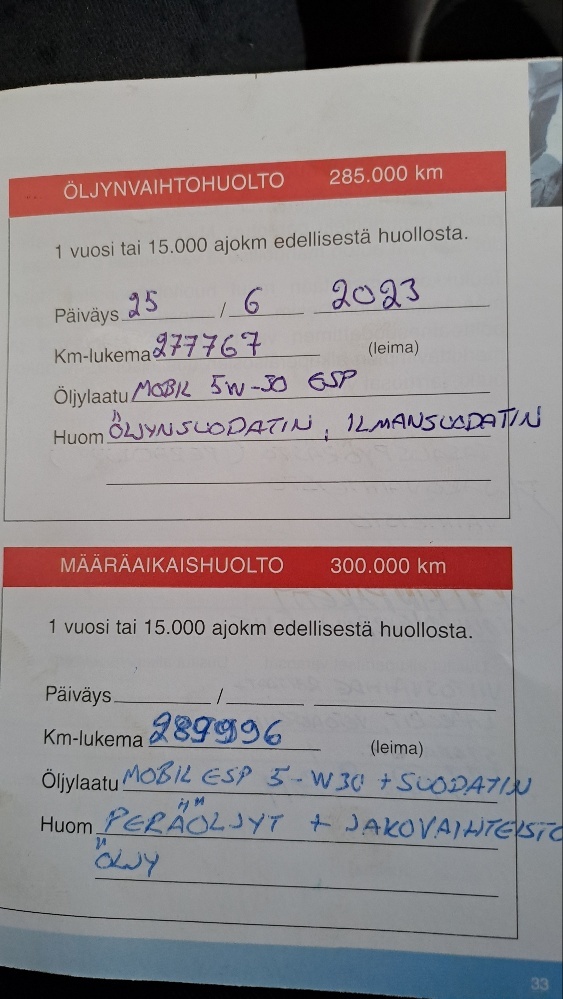 ÖLJYNVAIHTOHUOLTO 285.000 km
1 vuosi tai 15.000 ajokm edellisestä huollosta.
Päiväys 25 / 6 2023
Km-lukema 277767 (leima)
Öljylaatu MOBIL 5W-30 ESP
Huom ÖLJYNSUODATIN, ILMANSUODATIN
MÄÄRÄAIKAISHUOLTO 300.000 km
1 vuosi tai 15.000 ajokm edellisestä huollosta.
Päiväys /
Km-lukema 289996 (leima)
Öljylaatu MOBIL ESP 5-W30 + SUODATIN
Huom PERÄÖLJYT + JAKOVAIHTEISTO
ÖLJY
33